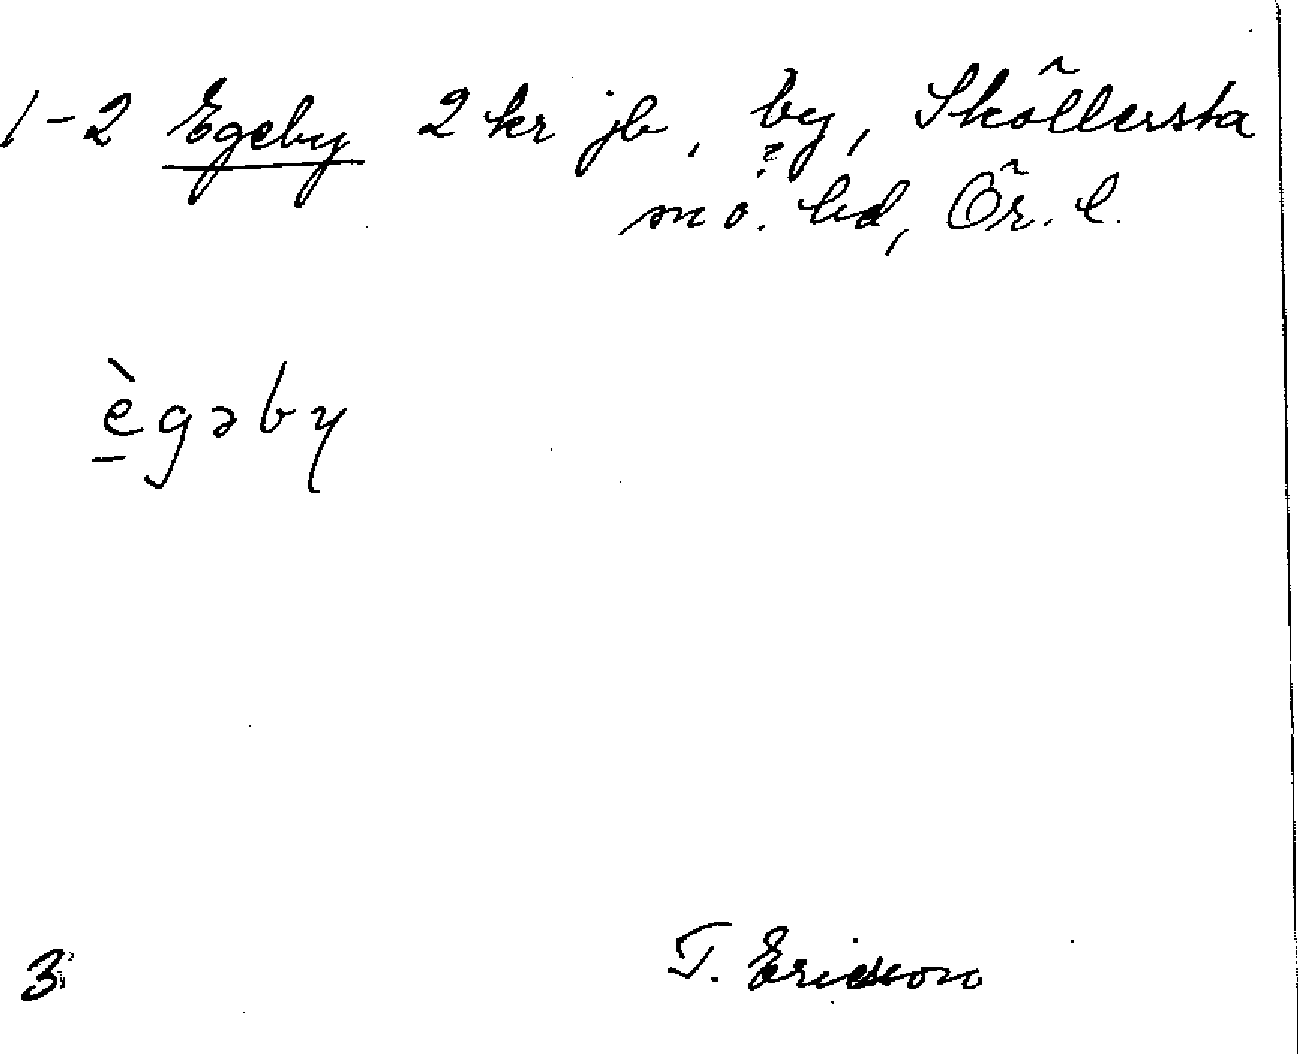 1-2 Egeby 2 kr jb, by, Sköllersta
sn ö. hd, Ör. l.
ègəby
3 T. Ericsson